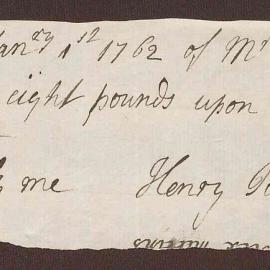 Janry 1st 1762 of Mr
eight pounds upon
me Henry